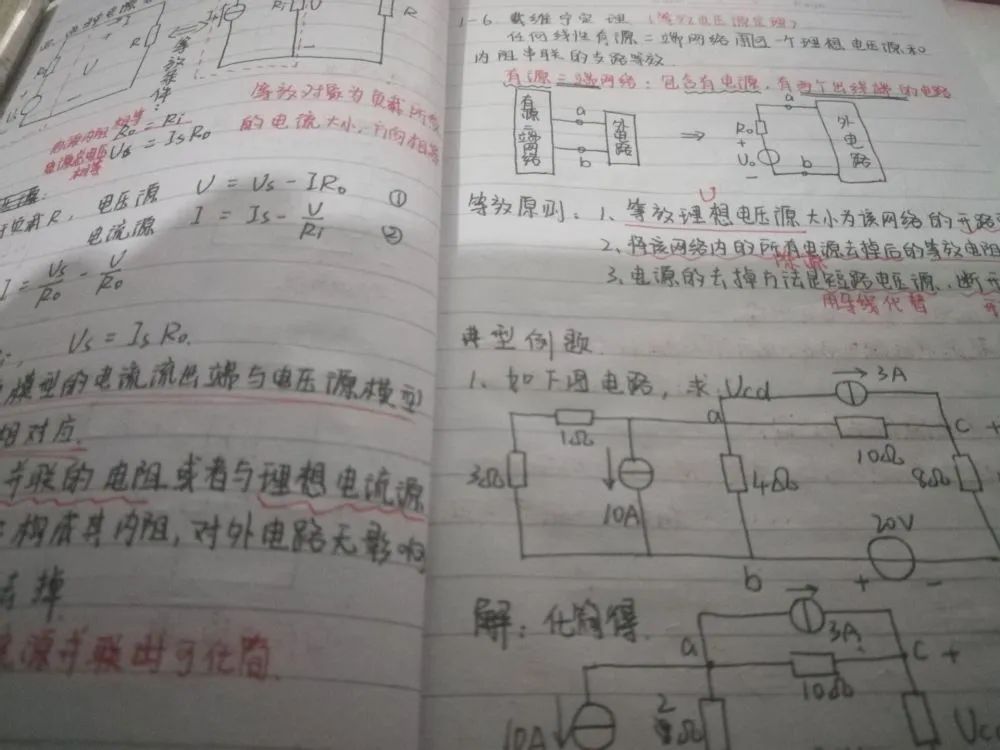 R
U
等效条件:
Ri
U
R
等效对象为负载所需
的电流大小,方向相等
R₀ = Ri
Us = Is R₀
电压源
电流源
U = Us - IR₀ ①
I = Is - U/Ri ②
I = Us/R₀ - U/R₀
Us = Is R₀
模型的电流流出端与电压源模型
相对应.
并联的电阻或者与理想电流源
构成其内阻,对外电路无影响
去掉
源并联时可化简.
1-6. 戴维宁定理(等效电压源定理)
任何线性有源二端网络用一个理想电压源和
内阻串联的支路等效.
有源二端网络:包含有电源,有两个出线端的电路
有源二端网络
a
b
外电路
⇒
a
R₀
+
U₀
-
b
外电路
U
等效原则:1、等效理想电压源大小为该网络的开路
2、将该网络内的所有电源去掉后的等效电阻
除源
3、电源的去掉方法是短路电压源、断开
用导线代替
典型例题
1、如下图电路,求Ucd
3A
a
C +
1Ω
10Ω
3Ω
4Ω
8Ω
10A
20V
b
+ -
解:化简得.
3A
a
C +
10Ω
10A
2Ω
Uc